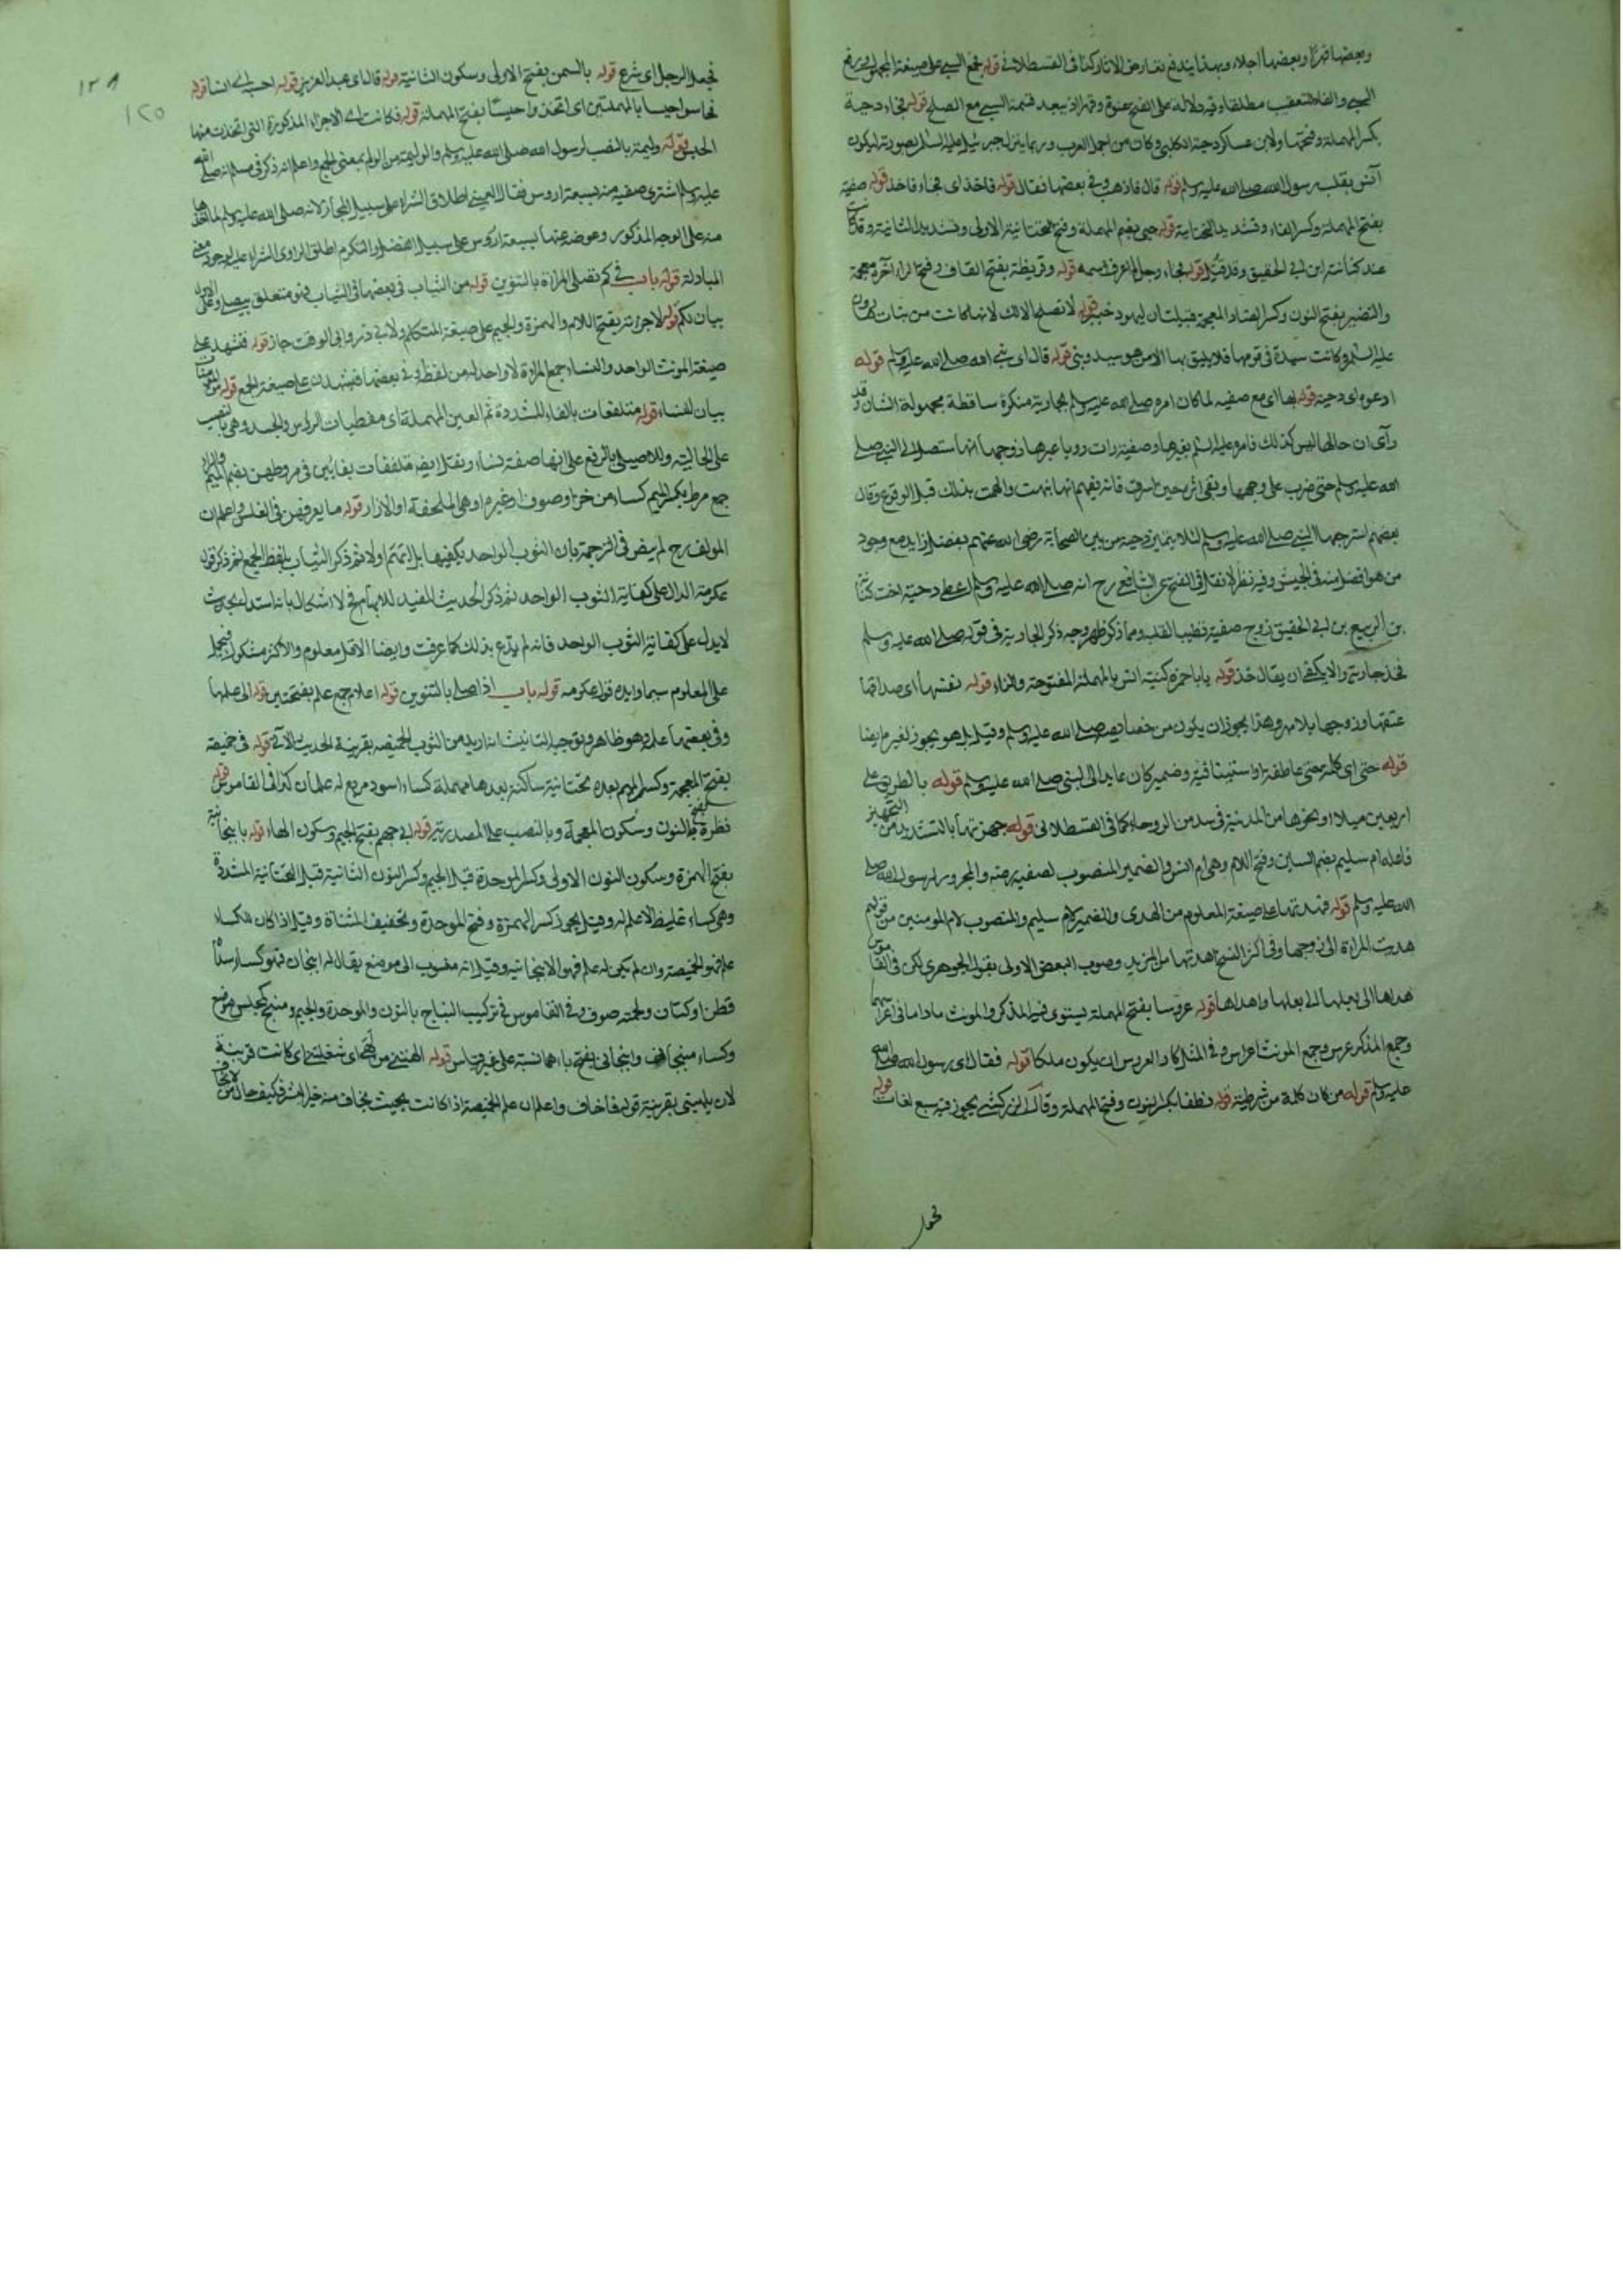 وبعضها قهرا وبعضها اجلاء وبهذا يندفع تعارض الاثار كذا فى القسطلانى قوله فجمع السبي على صيغة المجهول
السبي والفاء للتعقيب مطلقا وفيه دلالة على الفتح عنوة وقهرا اذ يبعد قسمة السبي مع الصلح قوله فجاء دحية
بكسر المهملة وفتحها ولابن عساكر دحية الكلبي وكان من اجمل العرب وربما ينزل جبرئيل عليه السلام بصورته ليكون
آنس بقلب رسول الله صلى الله عليه وسلم قوله قال فاذهب وفي بعضها فقال قوله فاخذ اى فجاء فاخذ قوله صفية
بفتح المهملة وكسر الفاء وتشديد التحتانية قوله حيي بضم المهملة وفتح التحتانية الاولى وتشديد الثانية وقد كانت
عند كنانة ابن ابى الحقيق وقد قتل قوله فجاء رجل لم اعرف اسمه قوله وقريظة بضم القاف وفتح الراء آخره معجمة
والنضير بفتح النون وكسر الضاد المعجمة قبيلتان ليهود خيبر قوله لا تصلح الا لك لانها كانت من بنات هارون
عليه السلام وكانت سيدة فى قومها فلا يليق بها الا من هو سيد وبنى قوله قال اى نبي الله صلى الله عليه وسلم قوله
ادعوه اى دحية قوله بها اى مع صفية لما كان امره صلى الله عليه وسلم بجارية منكرة ساقطة مجهولة الشان وقد
رآى ان حالها ليس كذلك فامره عليه السلام بغيرها وصفية رات رويا عبرها زوجها انها ستصل الى النبي صلى
الله عليه وسلم حتى ضرب على وجهها وبقى اثره فانه يفهم انها بهت والهمت بذلك قبل الوقوع وقال
بعضهم استرجعها النبي صلى الله عليه وسلم لئلا يتميز دحية من بين الصحابة رضى الله عنهم بفضل زايد مع وجود
من هو افضل منه فى الجيش وفيه نظر لانه نقل فى الفتح عن الشافعي رح انه صلى الله عليه وسلم اعطى دحية اخت كنانة
بن الربيع بن ابى الحقيق زوج صفية تطييب القلب ومما ذكر ظهر وجه ذكر الجارية فى قوله صلى الله عليه وسلم
فخذ جارية والا يكفى ان يقال خذ قوله يا ابا حمزة كنية انس بالمهملة المفتوحة والزاء قوله نفسها اى صداقها
عتقها وزوجها بلا مهر وهذا يجوز ان يكون من خصايصه صلى الله عليه وسلم وقيل بل هو يجوز لغيره ايضا
قوله حتى اى كلمة حتى عاطفة او استينافية وضمير كان عايد الى النبي صلى الله عليه وسلم قوله بالطريق على
اربعين ميلا او نحوها من المدينة فى سد من الروحاء كما فى القسطلانى قوله جهزتها بالتشديد من التجهيز
فاعله ام سليم بضم السين وفتح اللام وهى ام انس والضمير المنصوب لصفية رضه والمجرور لرسول الله صلى
الله عليه وسلم قوله فهدتها على صيغة المعلوم من الهدى والضمير لام سليم والمنصوب لام المومنين من قولهم
هديت المراة الى زوجها وفى اكثر النسخ اهدتها من المزيد وصوب البعض الاولى بقول الجوهرى لكن فى القاموس
هداها الى بعلها الى بعلها واهداها قوله عروسا بفتح المهملة يستوى فيه المذكر والمونث ماداما فى اعراسهما
وجمع المذكر عرس وجمع المونث عرايس وفى المثل كاد العروس ان يكون ملكا قوله فقال اى رسول الله صلى الله
عليه وسلم قوله من كان كلمة من شرطية قوله نطعا بكسر النون وفتح المهملة وقال الزركشى يجوز فيه سبع لغات قوله
فجعل
١٢٨
١٢٥
فجعل الرجل اى شرع قوله بالسمن بفتح الاولى وسكون الثانية قوله قال اى عبد العزيز قوله احسب اى انسا قوله
فحاسوا حيسا بالمهملتين اى اتخذوا حيسا بفتح المهملة قوله فكانت اى الاجزاء المذكورة التى اتخذت منها
الحيس قوله وليمة بالنصب لرسول الله صلى الله عليه وسلم والوليمة من الولم بمعنى الجمع واعلم انه ذكر فى مسلم انه صلى الله
عليه وسلم اشترى صفيه منه بسبعة اروس فقال العيني اطلاق الشراء على سبيل المجاز لانه صلى الله عليه وسلم لما اخذها
منه على الوجه المذكور وعوضه عنها بسبعة اروس على سبيل الفضل والتكرم اطلق الراوى الشراء عليه لوجود معنى
المبادلة قوله باب في كم تصلى المراة بالتنوين قوله من الثياب فى بعضها فى الثياب فهو متعلق بيصلى وعلى الاول
بيان لكم قوله لاجزته بفتح اللام والهمزة والجيم على صيغة المتكلم ولابى ذر وابى الوقت جاز قوله فتشهد على
صيغة المونث الواحد والنساء جمع المراة لا واحد له من لفظه وفى بعضها فيشهدن على صيغة الجمع قوله مومنات
بيان لنساء قوله متلفعات بالفاء المشددة ثم العين المهملة اى مغطيات الروس والجسد وهى بالنصب
على الحالية وللاصيلى بالرفع على انها صفة نساء ونقل ايضا متلففات بفائين فى مروطهن بضم الميم والراء
جمع مرط بكسر الميم كساء من خز او صوف او غيره او هى الملحفة او الازار قوله ما يعرفهن فى الغلس واعلم ان
المولف رح لم يبض فى الترجمة بان الثوب الواحد يكفيها بل اتهم اولا ثم ذكر الثياب بلفظ الجمع ثم ذكر قول
عكرمة الدال على كفاية الثوب الواحد ثم ذكر الحديث المفيد للابهام فح لا اشكال بانه استدل بحديث
لا يدل على كفاية الثوب الواحد فانه لم يدع بذلك كما عرفت وايضا الاقل معلوم والاكثر مشكوك فيحمل
على المعلوم سيما وايده قول عكرمه قوله باب اذا صلى بالتنوين قوله اعلام جمع علم بفتحتين قوله الى علمها
وفى بعضها علمه وهو ظاهر وتوجيه التانيث انه اريد من الثوب الخميصه بقرينة الحديث الآتى قوله فى خميصة
بفتح المعجمة وكسر الميم بعده تحتانية ساكنة بعدها مهملة كساء اسود مربع له علمان كذا فى القاموس قوله
نظرة بفتح النون وسكون المعجمة وبالنصب على المصدرية قوله ابى جهم بفتح الجيم وسكون الهاء قوله بانبجانية
بفتح الهمزة وسكون النون الاولى وكسر الموحدة قبل الجيم وكسر النون الثانية قبل التحتانية المشددة
وهى كساء غليظ لا علم له وقيل يجوز كسر الهمزة وفتح الموحدة وتخفيف المثناة وقيل اذا كان للكساء
علم فهو الخميصة وان لم يكن له علم فهو الانبجانية وقيل انه منسوب الى موضع يقال له انبجان فهو كساء سداه
قطن او كتان ولحمته صوف وفى القاموس فى تركيب النباج بالنون والموحدة والجيم ومنبج كمجلس موضع
وكساء منبجانى وانبجانى بفتح باءهما نسبة على غير قياس قوله الهتنى من لهى اى شغلتنى اى كانت قريبة
لان يلهينى بقرينة قوله فاخاف واعلم ان علم الخميصة اذا كانت بحيث يخاف منه خير البشر فكيف حال من